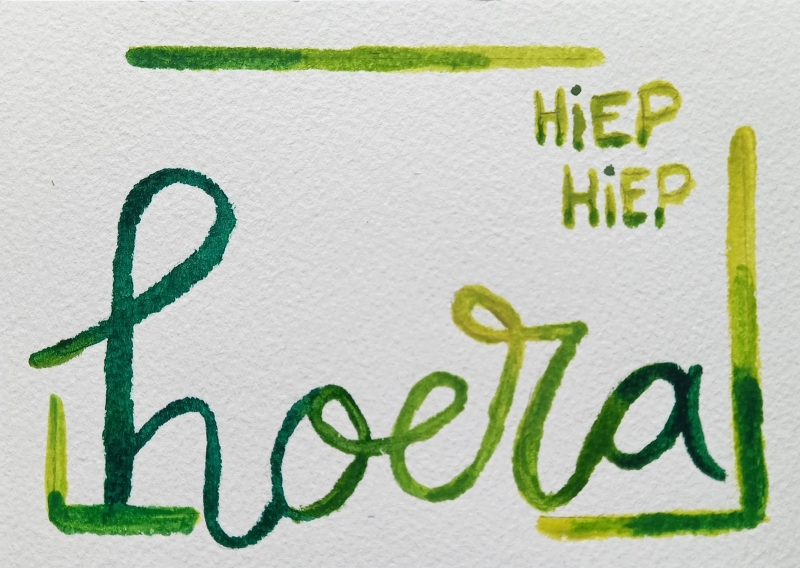 HiEP
HiEP
hoera